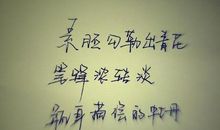 素胚勾勒出青花
笔锋浓转淡
瓶身描绘的牡丹